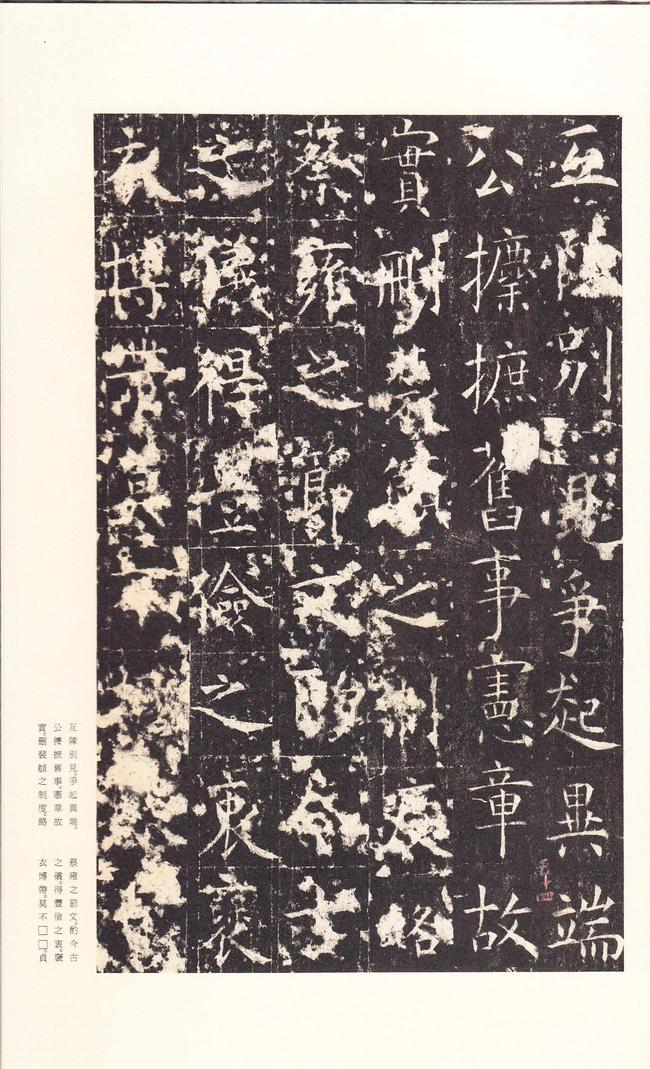 互陳別見爭起異端
公攈摭舊事憲章故
實刪裴頠之制度略
蔡雍之節文酌今古
之儀得豐儉之衷褒
衣博帶莫不□□貞
五十四
互陳別見。爭起異端。
公攈摭舊事。憲章故
實。刪裴頠之制度。略
蔡雍之節文。酌今古
之儀。得豐儉之衷。褒
衣博帶。莫不□□。貞